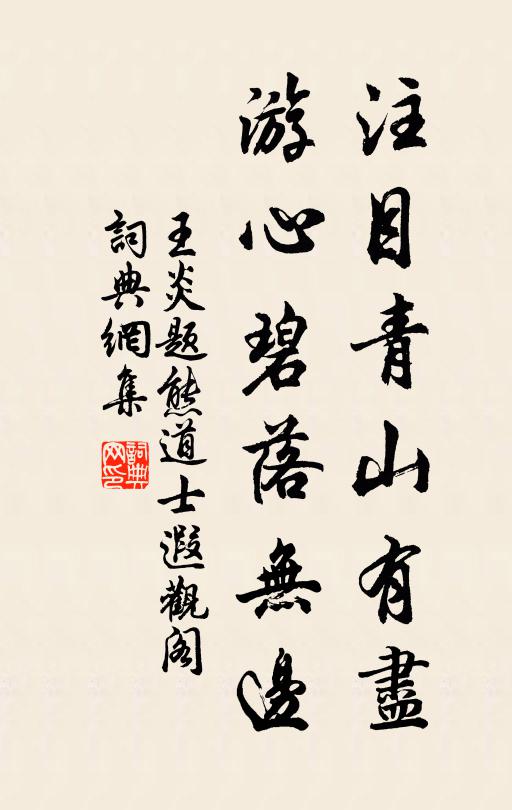 注目青山有盡
游心碧落無邊
王炎題熊道士遐觀阁
詞典網集
詞典网印